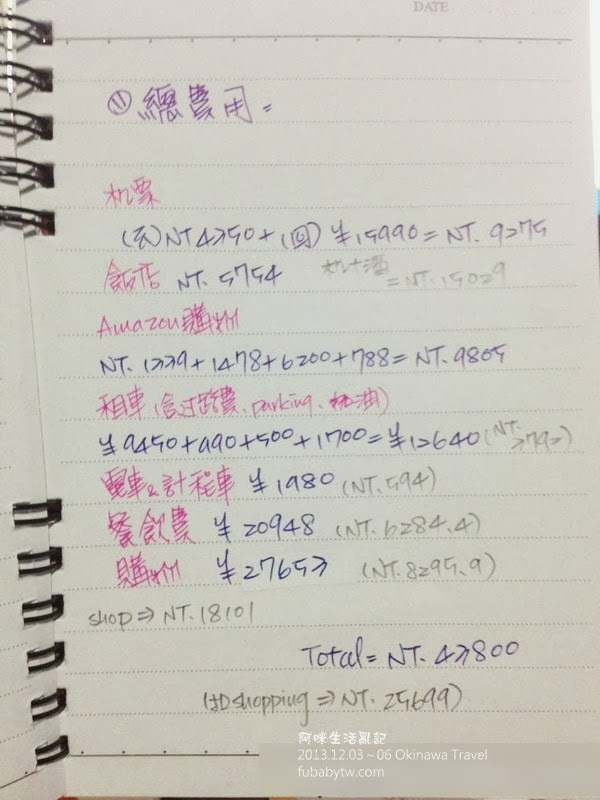 DATE
⑪ 總費用:
机票
(去)NT 4350+(回) ¥15990 = NT. 9275
飯店 NT. 5754 机+酒 = NT. 15029
Amazon 購物
NT. 1339+1478+6200+788 = NT. 9805
租車(含过路費、parking、加油)
¥9450+990+500+1700 = ¥12640 (NT. 3792)
電車&計程車 ¥1980 (NT. 594)
餐飲費 ¥20948 (NT. 6284.4)
購物 ¥27653 (NT. 8295.9)
shop ⇒ NT. 18101
Total = NT. 43800
(扣shopping ⇒ NT. 25699)
阿咪生活亂記
2013.12.03 ~ 06 Okinawa Travel
fubabytw.com